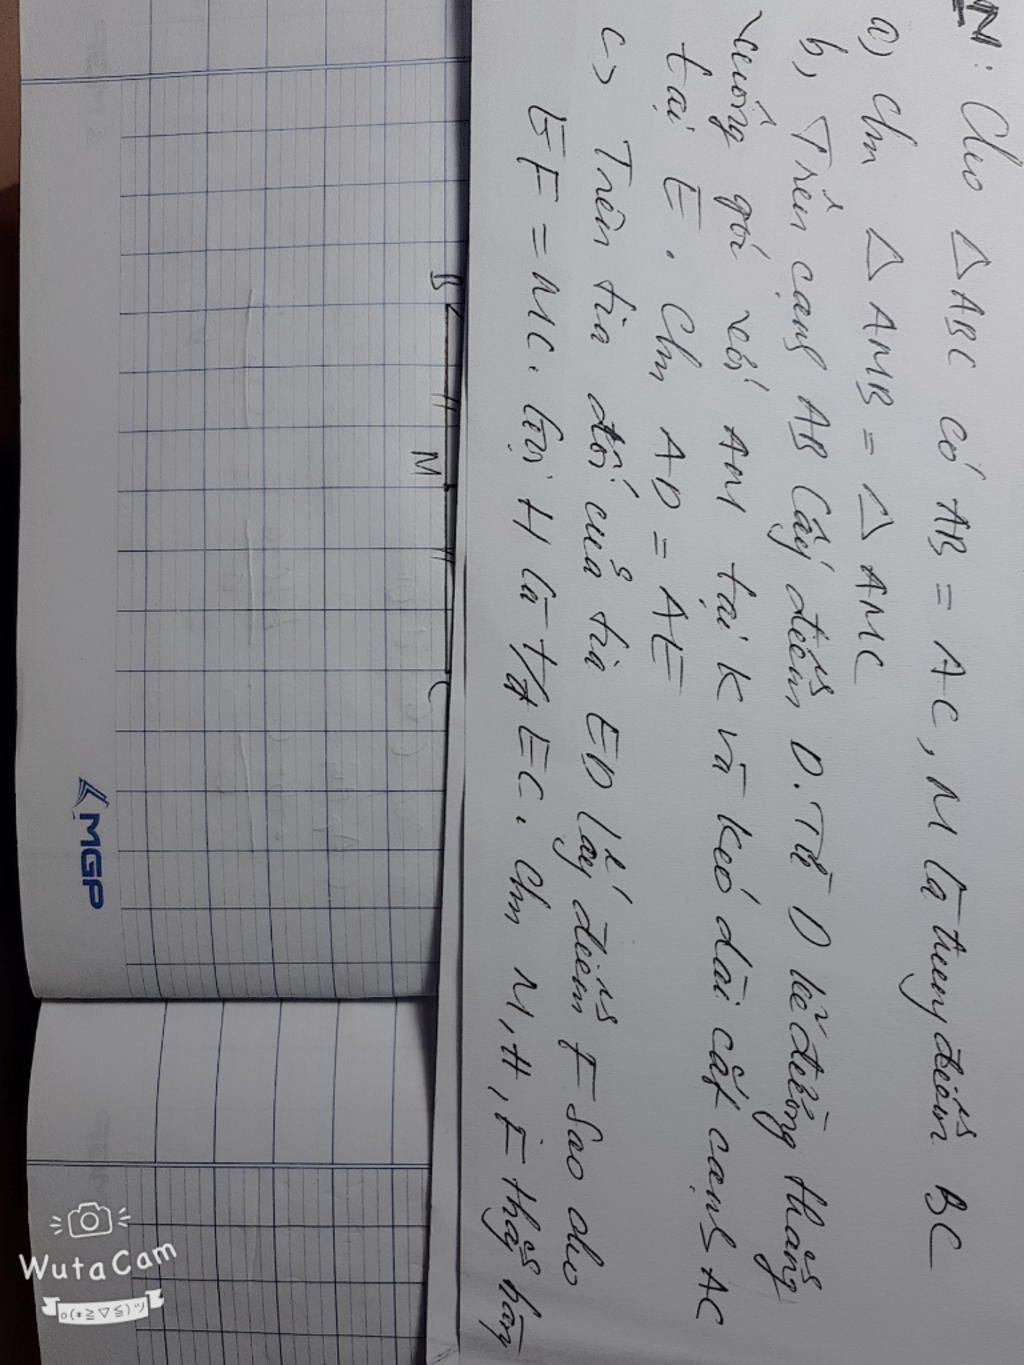 N: Cho △ABC có AB = AC, M là trung điểm BC
a) Chm △AMB = △AMC
b, Trên cạnh AB lấy điểm D. Từ D kẻ đường thẳng
vuông góc với AM tại K và kéo dài cắt cạnh AC
tại E. Chm AD = AE
c> Trên tia đối của tia ED lấy điểm F sao cho
EF = MC. Gọi H là t/đ EC. Chm M, H, F thẳng hàng
B M C
MGP
WutaCam
o(*≧▽≦)ツ